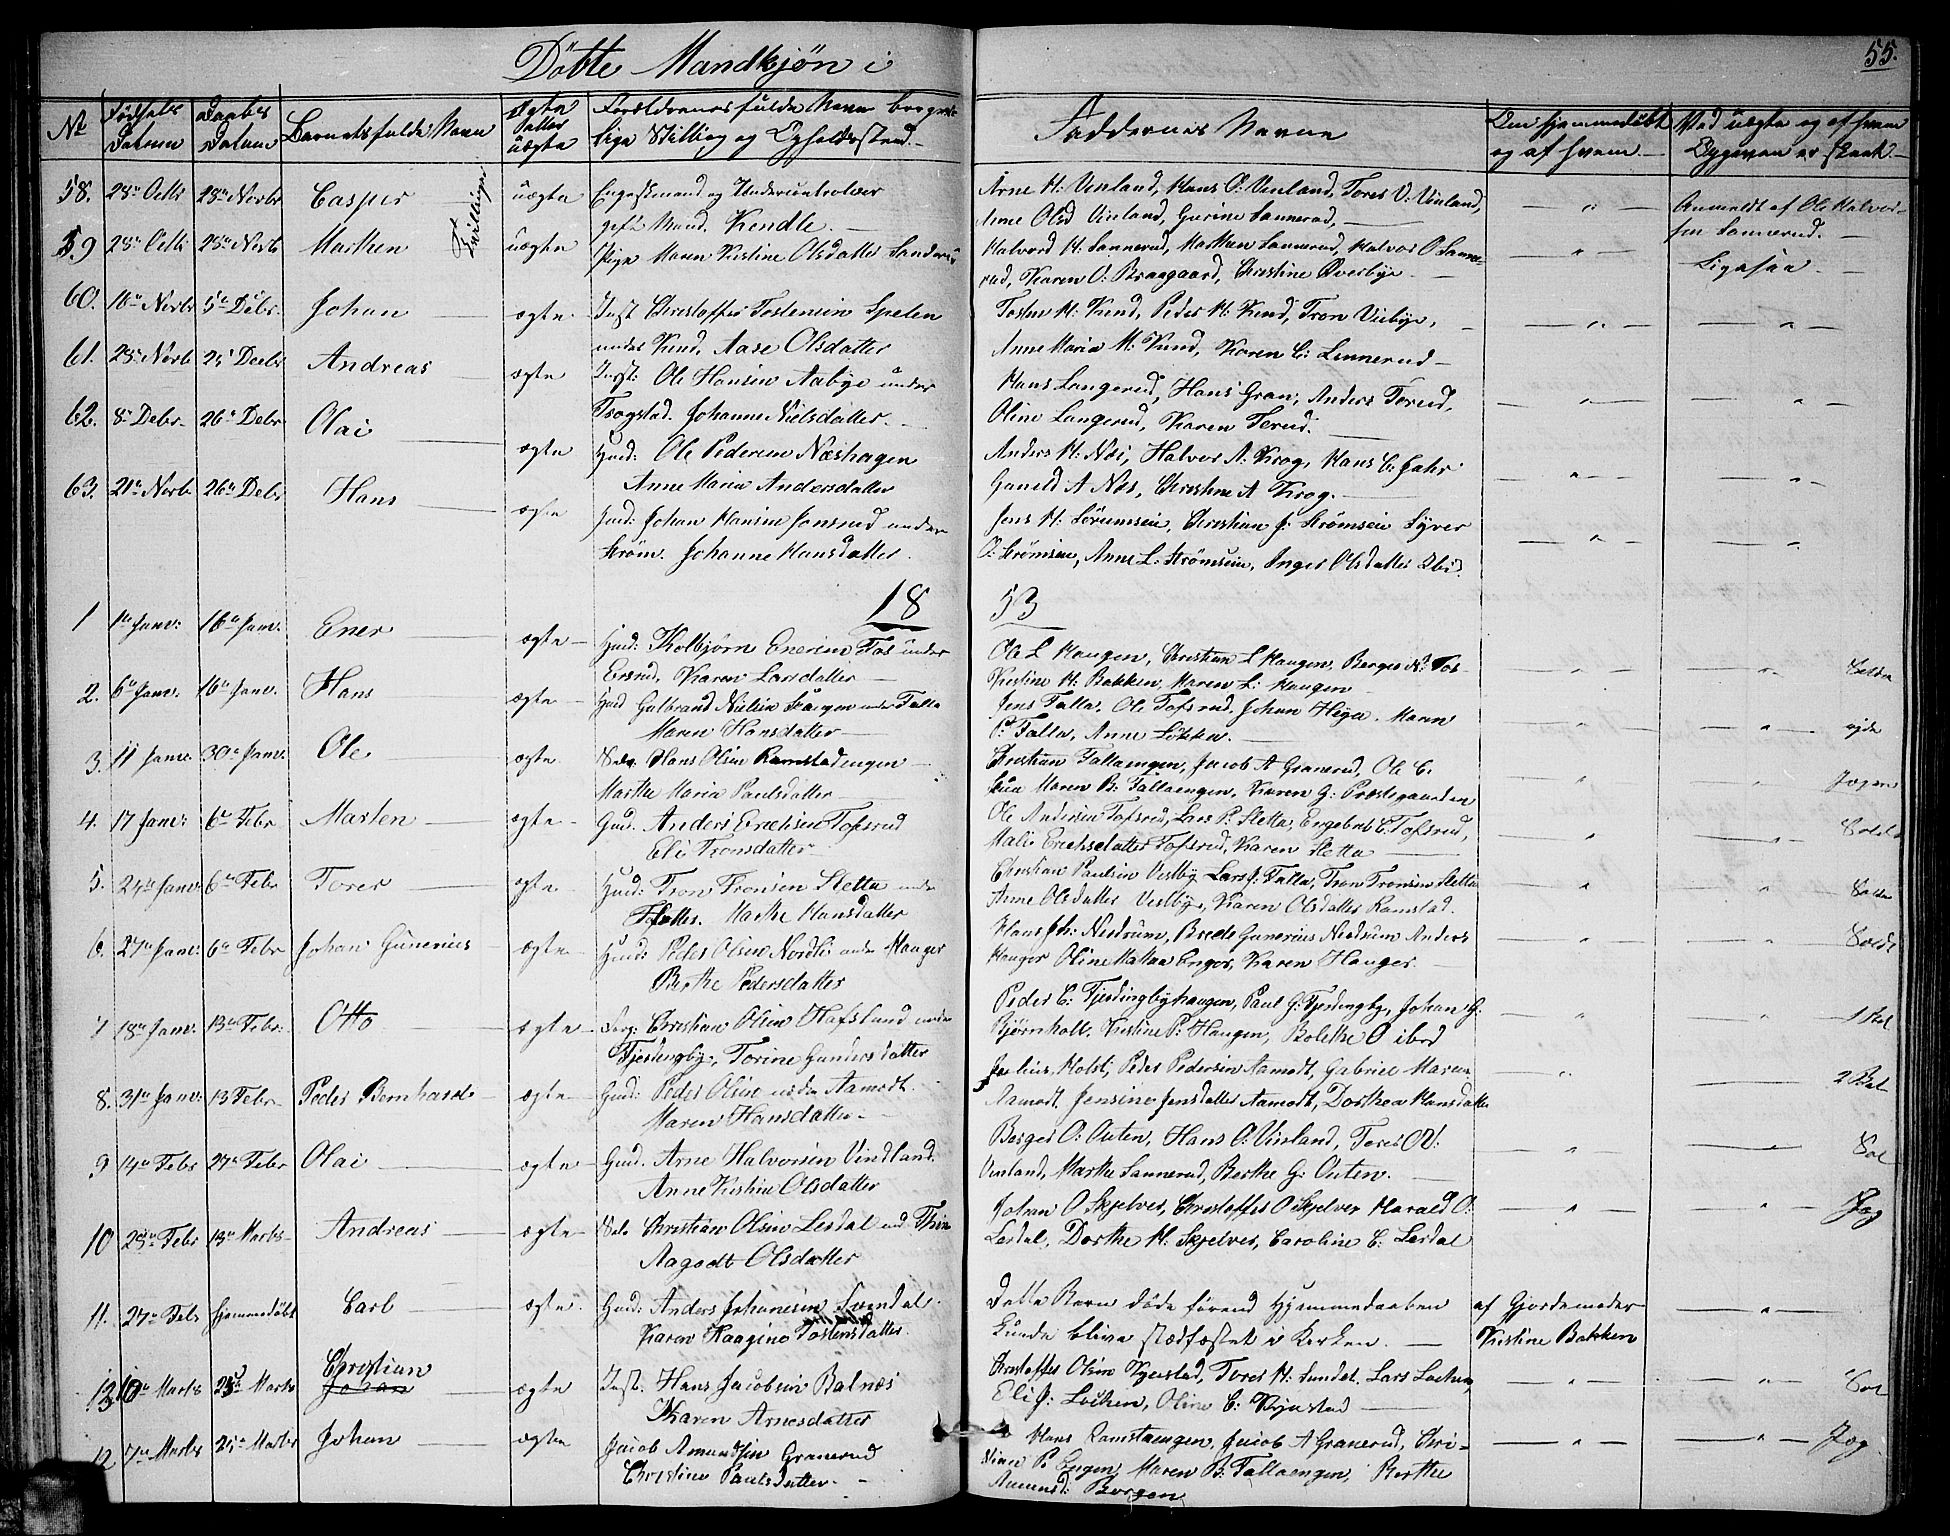 Döbte Mandkjøn i
55.
No
Fødsels Datum
Daabs Datum
Barnets fulde Navn
Ægte eller uægte
Forældrenes fulde Navn borger-
lige Stilling og Opholdssted.
Faddernes Navne
Om hjemmedöbt
og af hvem
Ved uægte og af hvem
Opgaven er skeet
58. 28de Octb 28de Novbr Casper Tvillinger uægte
gift Mand. Kendle.
Arne H: Vinland, Hans O: Vinland, Tores O: Vinland,
Anne Olsd Vinland, Gurine Sannerud,
Anmeldt af Ole Halvor-
sen Sannerud.
59 28de Octb 28de Novb Marthen uægte Pige Maren Kristine Olsdatter
Halvord H: Sannerud, Marthen Sannerud, Halvor O Sanne-
rud, Karen O: Braagaard, Christine Överbye
Ligesaa
60. 10de Novbr 5te Debr. Johan ægte Inst Christoffer Tostensen Spelen
under Kind, Aase Olsdatter
Tosten H: Kind, Peder H: Kind, Tron Viebye,
Anne Maria M: Kind, Karen C: Linnerud
61. 28de Novb 25 Decbr Andreas ægte Inst: Ole Hansen Aabye under
Trogstad. Johanne Nielsdatter.
Hans Langerud, Hans Gran, Anders Terud,
Oline Langerud, Karen Terud.
62. 8de Debr. 26de Debr Olai ægte Huusd: Ole Pedersen Næshagen
Anne Maria Andersdatter
Anders H: Næs, Halvor A: Krog, Hans C:
Gunild A Næs, Christine A Krog.
63. 21de Novb 26de Debr Hans ægte Huusd: Johan Hansen Jonsrud under
Ström. Johanne Hansdatter.
Jens H: Sörumseie, Christian J: Strömseie Syver
O: Strömseie, Anne L: Strömseie, Inger Olsdatter Ibid.
18 53
1 1ste Janv: 16de Janv. Ener ægte Huusd: Kolbjørn Enersen Fos under
Ersrud, Karen Larsdatter
Ole L Haugen, Christian L Haugen, Berger N: Fos
Kistine H: Bakken, Maren L: Haugen
2. 6te Janv. 16de Janv. Hans ægte Huusd Gulbrand Nielsen under Falla
Maren Hansdatter
Jens Falla, Ole Tofsrud, Johan Heyer, Maren
P: Falla, Anne Løkken.
3. 11 Janv. 30de Janv. Ole ægte Hans Olsen Ramstadengen
Marthe Maria Paulsdatter
Christian Fallaengen, Jacob A Granerud, Ole C.
Maren B: Fallaengen, Karen G: Præstegaarden
4. 17 Janv: 6te Febr Marten ægte Huusd. Anders Erichsen Tofsrud
Eli Tronsdatter
Ole Andersen Tofsrud, Lars P: Sletta, Engebret C: Tofsrud,
Mali Erichsdatter Tofsrud, Karen Sletta
5. 24de Janv 6te Febr Torer ægte Huusd: Tron Tronsen Sletta under
Marthe Hansdatter
Christian Paulsen Vestby, Lars J: Falla, Tron Tronsen Sletta
Anne Olsdatter Vestby, Karen Olsdatter Ramstad.
6. 27de Janv: 6te Febr Johan Gunerius ægte Huusd: Peder Olsen Nordli under Hauger
Berthe Pedersdatter
Hans Nordrum, Brede Gunerius Nordrum Anders
Hauger Oline Engor, Karen Hauger.
7 18de Janv. 13de Febr: Otto ægte Christian Olsen Hafsland under
Fjerdingby, Torine Gundersdatter
Peder C: Fjerdingbyhaugen, Paul G: Fjerdingby, Johan G:
Bjørnholt, Kistine P: Haugen, Bolethe O ibid
8. 31te Janv: 13 Febr Peder Bernhard ægte Huusd: Peder Olsen under Aamodt.
Maren Hansdatter
Julius Holst, Peder Pedersen Aamodt, Gabriel
Aamodt, Jensine Jensdatter Aamodt, Dorthea Hansdatter
9 14de Febr 27de Febr Olai ægte Huusd. Arne Halvorsen Vindland.
Anne Kistine Olsdatter
Borger O: Outen, Hans O: Vinland, Tores O:
Vinland, Marthe Sannerud, Berthe G: Outen.
10 28de Febr 13de Marts Andreas ægte Christian Olsen Lerdal
Aagodt Olsdatter
Johan O Skjelver, Christoffer O Skjelver Harald O:
Lerdal, Dorthe H. Skjelver, Caroline C: Lerdal
11. 27de Feb hjemmedöbt Carl ægte Huusd: Anders Johanesen Svendal.
Karen Haagine Tostensdatter.
Dette Barn døde førend Hjemmedaaben
kunde blive stadfæstet i Kirken.
af Gjordemoder
Kistine Bakken
13 10de Marts 25de Marts Christian Johan ægte Inst. Hans Jacobsen Balnæs
Karen Arnesdatter
Christoffer Olsen Kjustad, Torer H. Sundet, Lars Løchen,
Eli J: Løchen, Oline C: Kjustad
12 7de Marts 25de Marts Johan ægte Jacob Amundsen Granerud
Christine Paulsdatter.
Hans Ramstaengen, Jacob A Granerud, Chri-
stian P: Engen, Maren B: Fallaengen, Berthe
Amunsd: Borgen